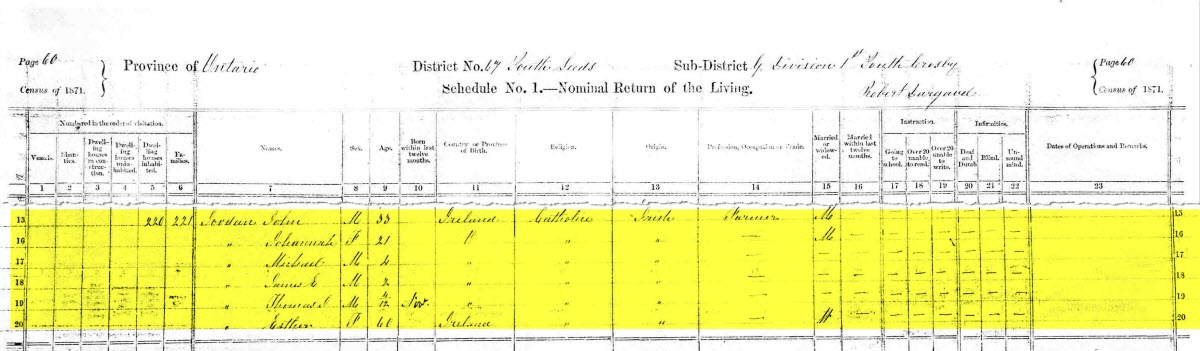 Page 60 Province of Ontario District No. 67 South Leeds Sub-District G Division 1st South Crosby Page 60
Census of 1871. Schedule No. 1.—Nominal Return of the Living. Robert Census of 1871.
Numbered in the order of visitation. Instruction. Infirmities.
Vessels. Shanties. Dwelling houses in construction. Dwelling houses uninhabited. Dwelling houses inhabited. Families. Names. Sex. Age. Born within last twelve months. Country or Province of Birth. Religion. Origin. Profession, Occupation or Trade. Married or widowed. Married within last twelve months. Going to school. Over 20 unable to read. Over 20 unable to write. Deaf and Dumb. Blind. Unsound mind. Dates of Operations and Remarks.
1 2 3 4 5 6 7 8 9 10 11 12 13 14 15 16 17 18 19 20 21 22 23
15 220 221 Jordan John M 33 Ireland Catholic Irish Farmer M — — — — — — — 15
16 " Johannah F 21 " " " — M — — — — — — — 16
17 " Michael M 4 " " " — — — — — — — — 17
18 " James E M 2 " " " — — — — — — — — 18
19 " Thomas J M 4/12 Nov. " " " — — — — — — — — 19
20 " Esther F 60 Ireland " " — — — — — — — — 20